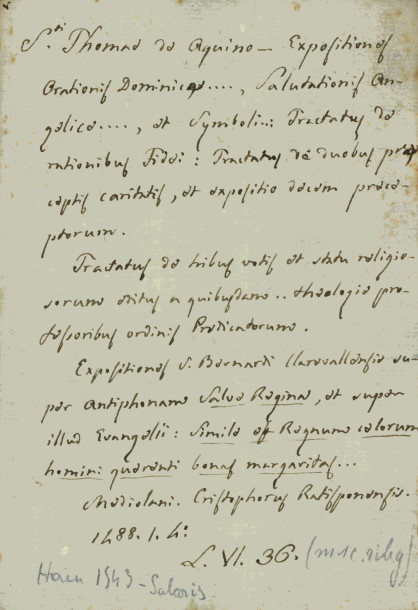 S.ti Thomae de Aquino — Expositiones
Orationis Dominicae...., Salutationis An-
gelicae...., et Symboli...: Tractatus de
rationibus Fidei: Tractatus de duobus prae-
ceptis caritatis, et expositio decem praece-
ptorum.
Tractatus de tribus votis et statu religio-
sorum editus a quibusdam.. theologie pro-
fessoribus ordinis Predicatorum.
Expositiones S. Bernardi Claravallensis su-
per Antiphonam Salve Regina, et super
illud Evangelii: Simile est Regnum celorum
homini querenti bonas margaritas...
Mediolani. Cristophorus Ratisponensis.
1488. 1. 4.°
L. VI. 36. (misc. rileg)
1943 - Salaris